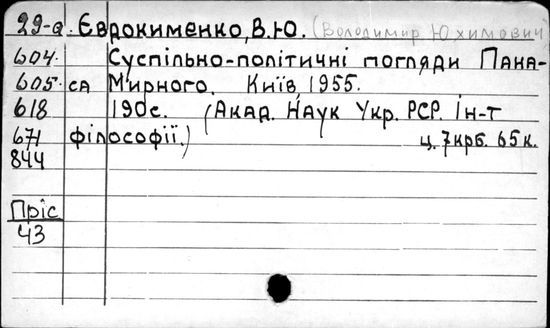 29-а. Євдокименко, В.Ю. (Володимир Юхимович)
604. Суспільно-політичні погляди Пана-
605. са Мирного. Київ, 1955.
618 190с. (Акад. Наук Укр. РСР. Ін-т
671 філософії.) ц. 7крб. 65к.
844
Пріс
43